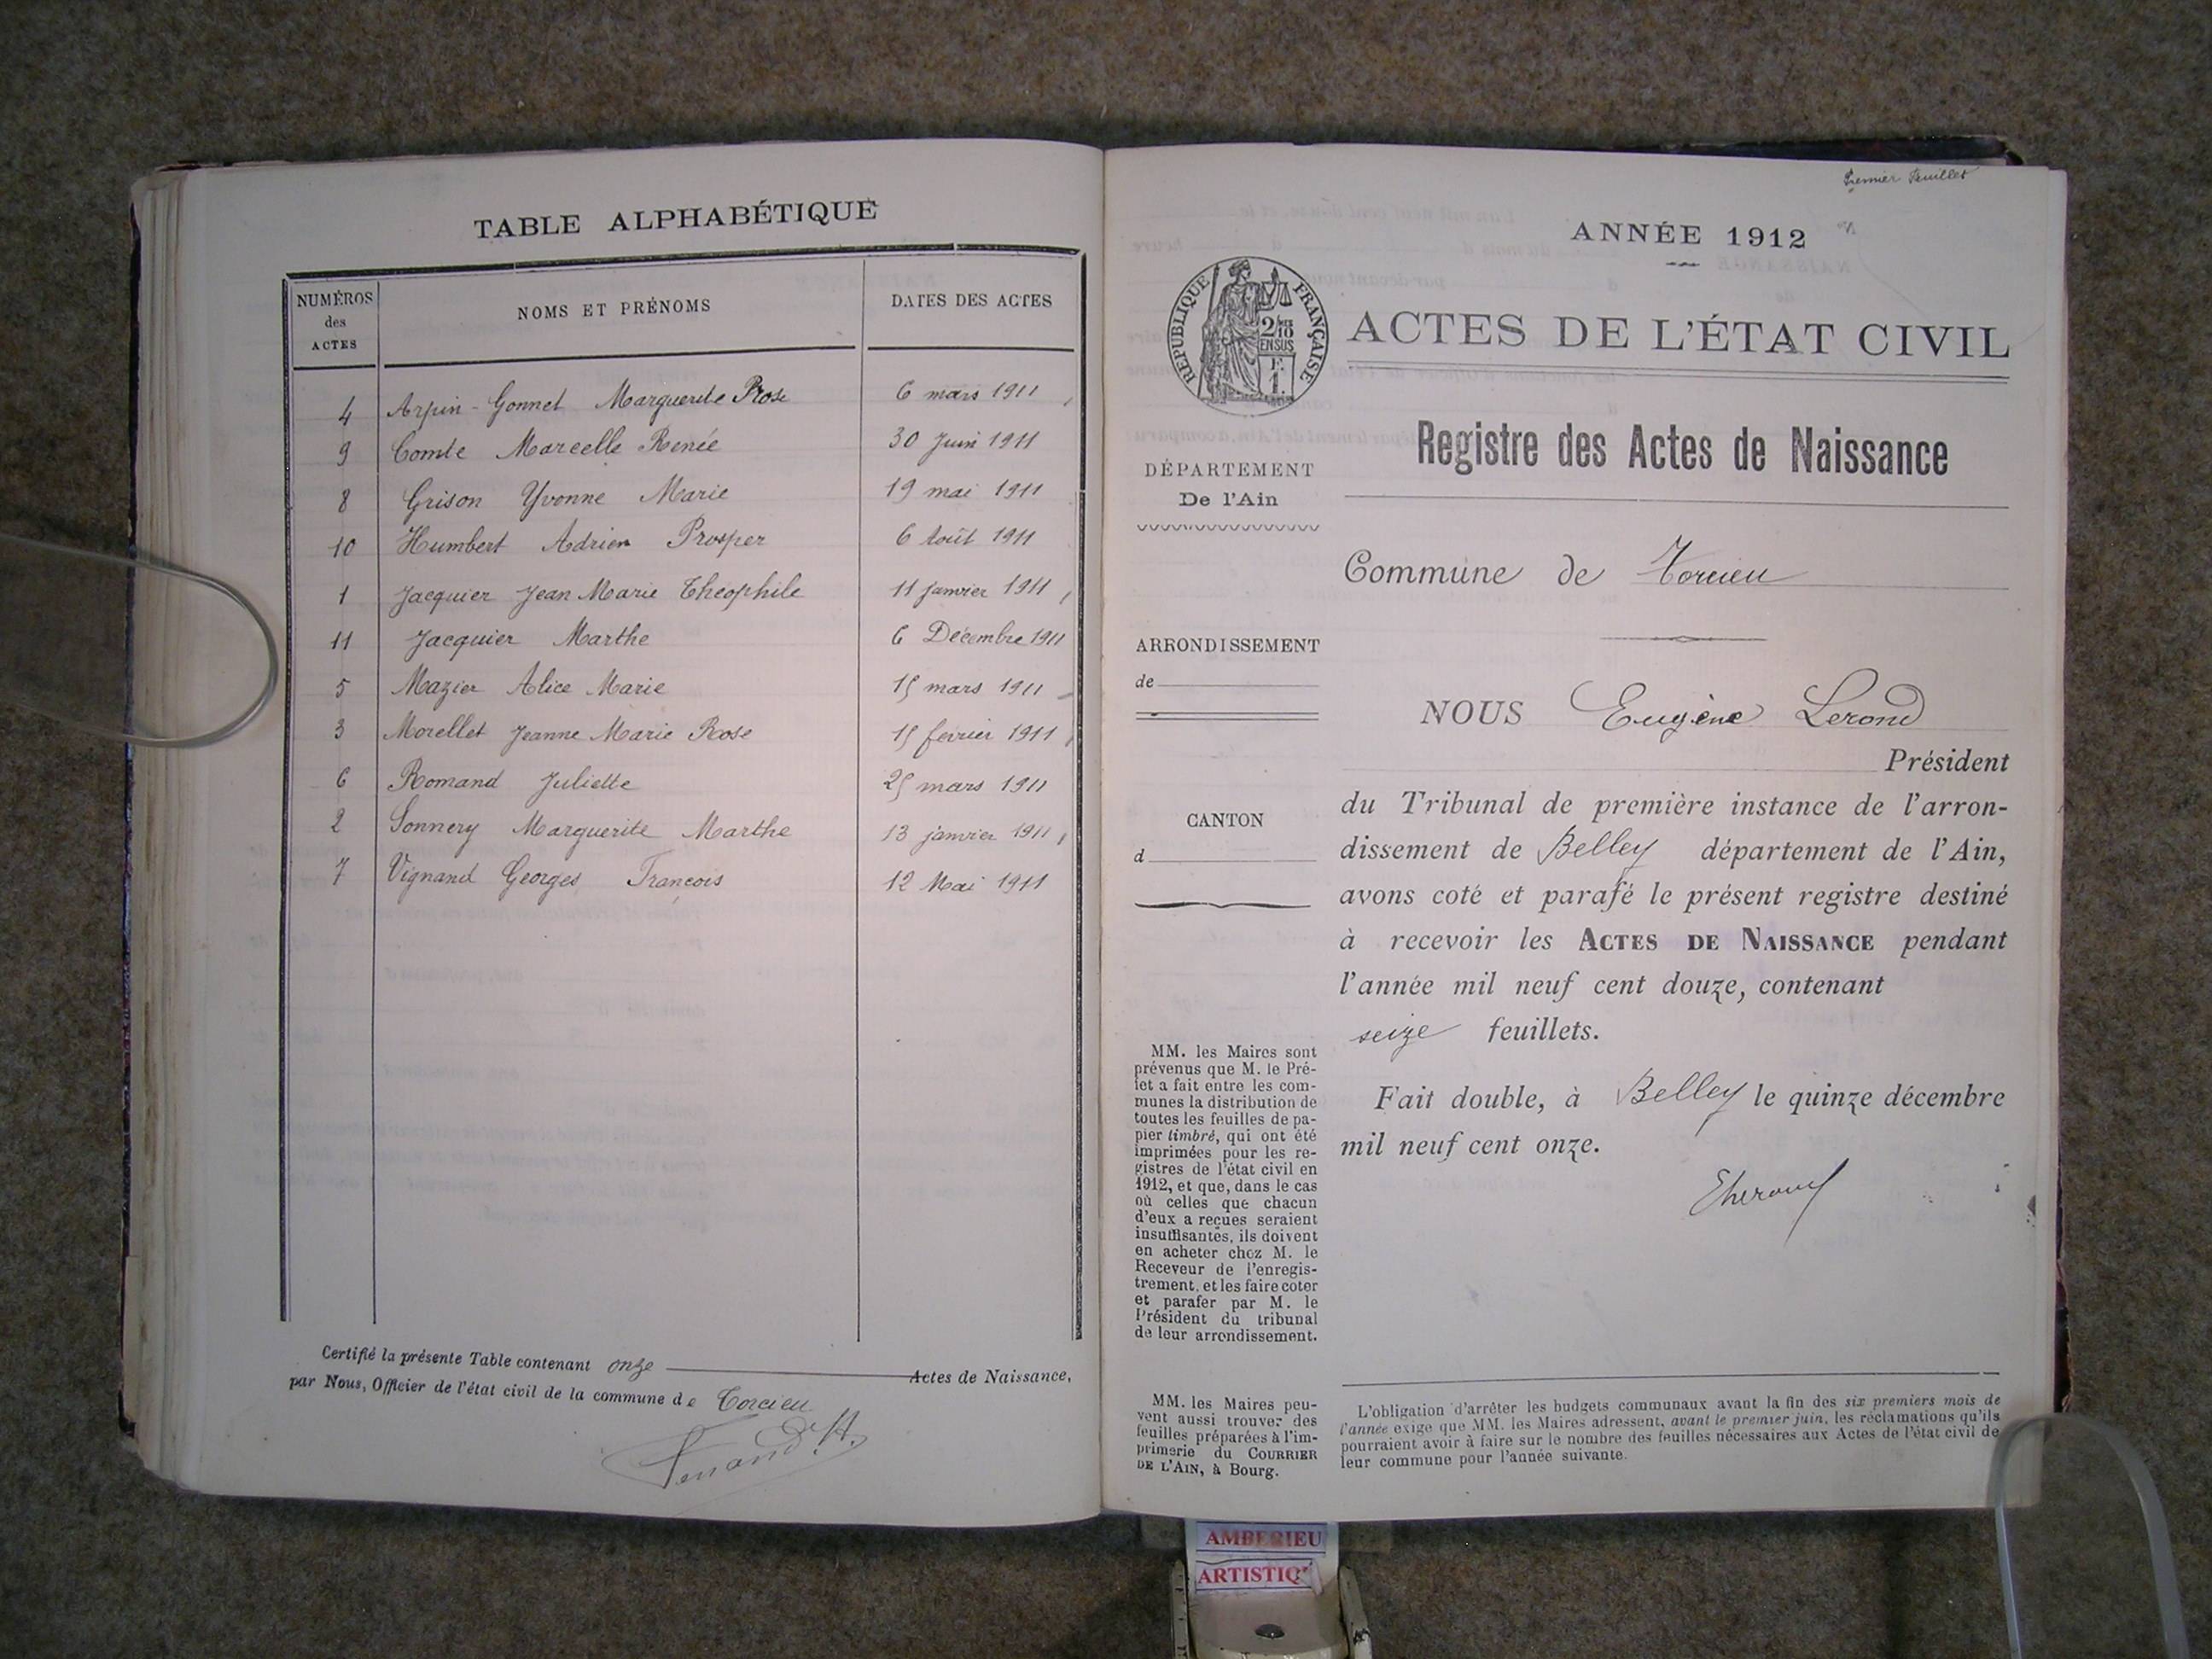 TABLE ALPHABÉTIQUE
NUMÉROS des ACTES NOMS ET PRÉNOMS DATES DES ACTES
4 Arpin-Gonnet Marguerite Rose 6 mars 1911
9 Comte Marcelle Renée 30 Juin 1911
8 Grison Yvonne Marie 19 mai 1911
10 Humbert Adrien Prosper 6 Août 1911
1 Jacquier Jean Marie Théophile 11 janvier 1911
11 Jacquier Marthe 6 Décembre 1911
5 Mazier Alice Marie 15 mars 1911
3 Morellet Jeanne Marie Rose 15 février 1911
6 Romand Juliette 25 mars 1911
2 Sonnery Marguerite Marthe 13 janvier 1911
7 Vignand Georges François 12 Mai 1911
Certifié la présente Table contenant onze Actes de Naissance,
par Nous, Officier de l'état civil de la commune de Torcieu
Premier feuillet
ANNÉE 1912
RÉPUBLIQUE FRANÇAISE
2/10 EN SUS
F. 1.
ACTES DE L'ÉTAT CIVIL
Registre des Actes de Naissance
DÉPARTEMENT
De l'Ain
Commune de Torcieu
ARRONDISSEMENT
de
NOUS Eugène Lerond
Président
CANTON
d
du Tribunal de première instance de l'arron-
dissement de Belley département de l'Ain,
avons coté et parafé le présent registre destiné
à recevoir les ACTES DE NAISSANCE pendant
l'année mil neuf cent douze, contenant
seize feuillets.
Fait double, à Belley le quinze décembre
mil neuf cent onze.
MM. les Maires sont
prévenus que M. le Pré-
fet a fait entre les com-
munes la distribution de
toutes les feuilles de pa-
pier timbré, qui ont été
imprimées pour les re-
gistres de l'état civil en
1912, et que, dans le cas
où celles que chacun
d'eux a reçues seraient
insuffisantes, ils doivent
en acheter chez M. le
Receveur de l'enregis-
trement, et les faire coter
et parafer par M. le
Président du tribunal
de leur arrondissement.
MM. les Maires peu-
vent aussi trouver des
feuilles préparées à l'im-
primerie du COURRIER
DE L'AIN, à Bourg.
L'obligation d'arrêter les budgets communaux avant la fin des six premiers mois de
l'année exige que MM. les Maires adressent, avant le premier juin, les réclamations qu'ils
pourraient avoir à faire sur le nombre des feuilles nécessaires aux Actes de l'état civil de
leur commune pour l'année suivante.
AMBERIEU
ARTISTIQ